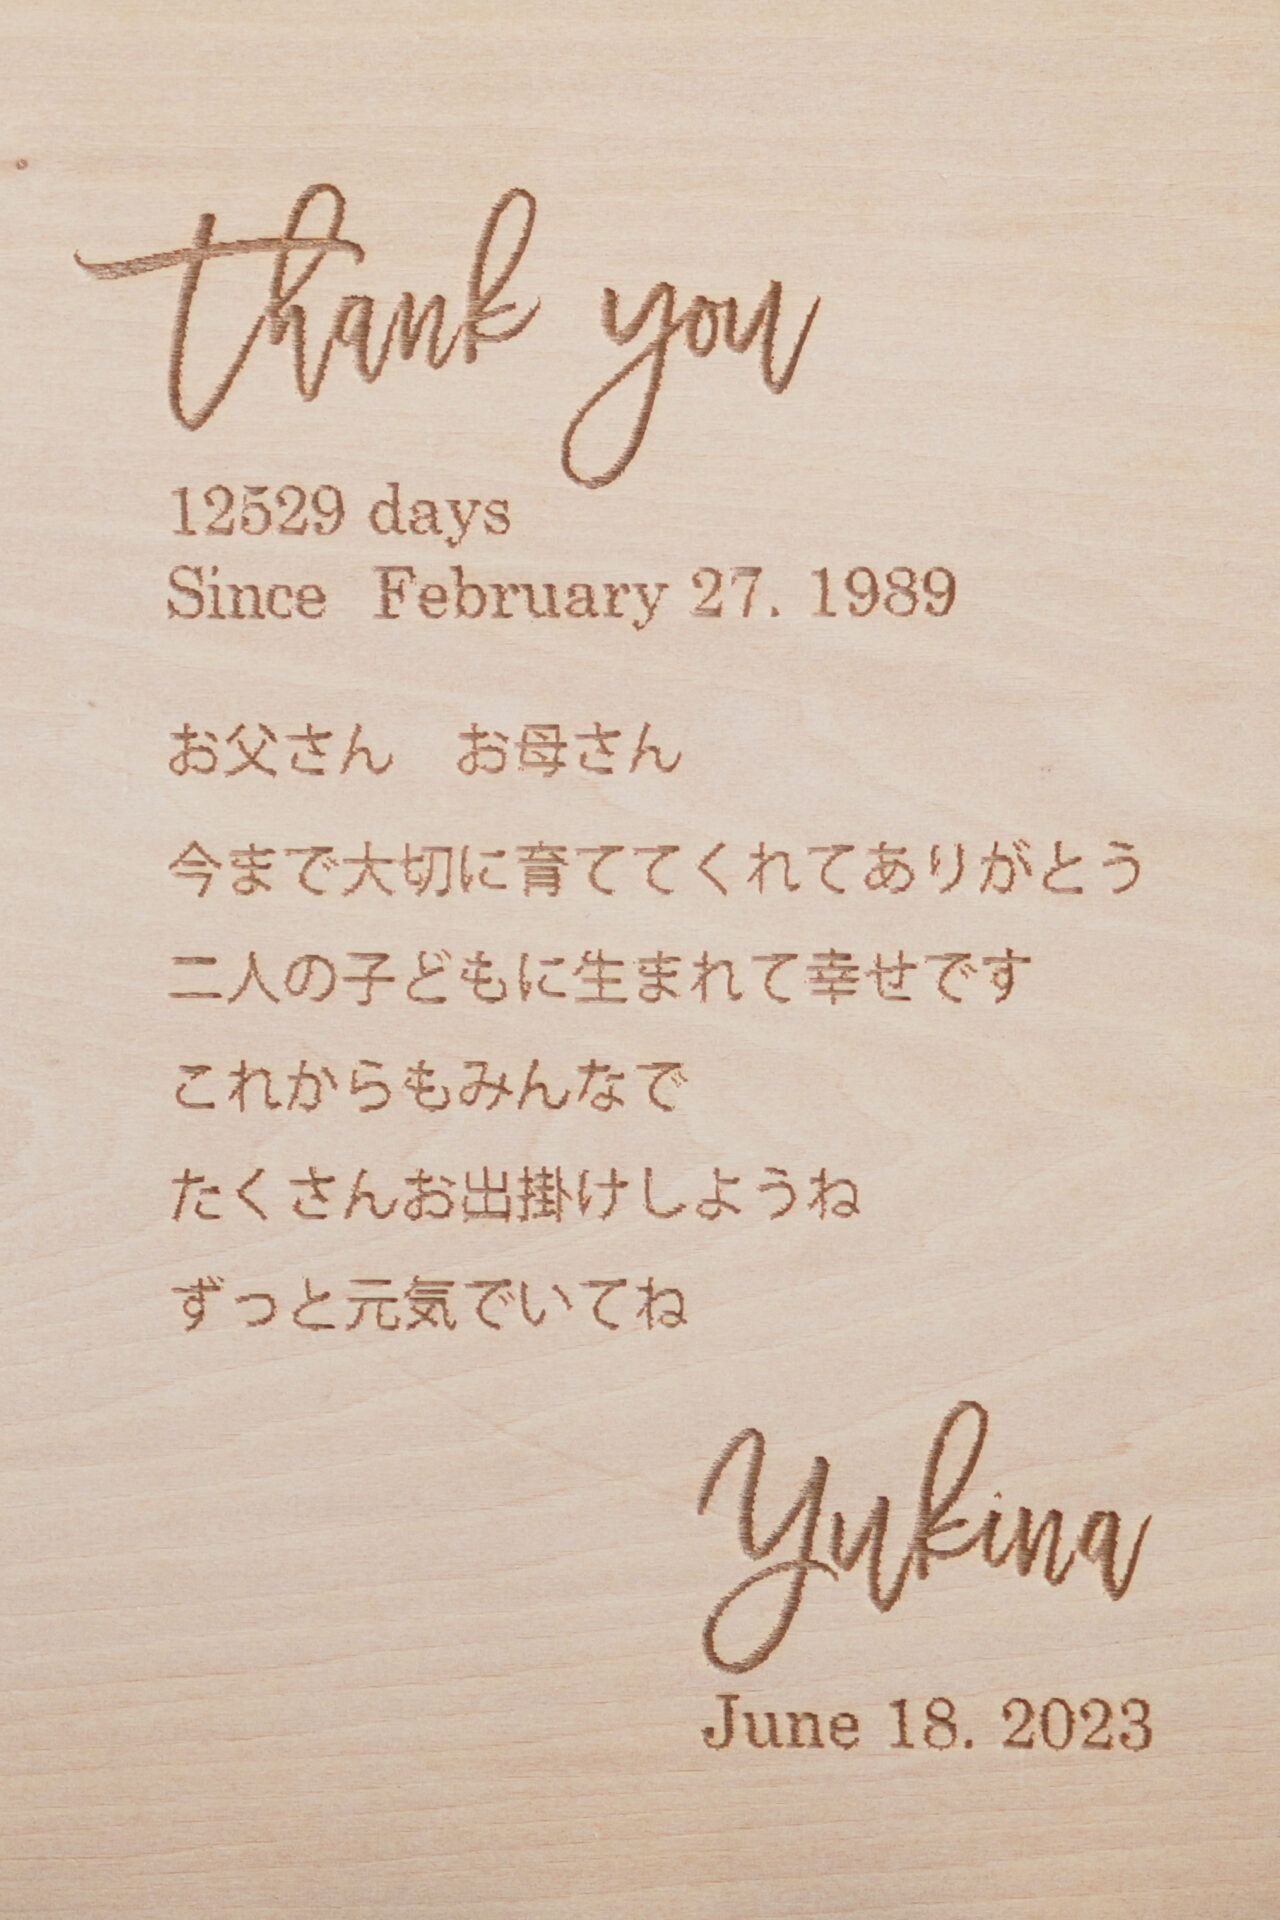 thank you
12529 days
Since February 27. 1989
お父さん　お母さん
今まで大切に育ててくれてありがとう
二人の子どもに生まれて幸せです
これからもみんなで
たくさんお出掛けしようね
ずっと元気でいてね
Yukina
June 18. 2023